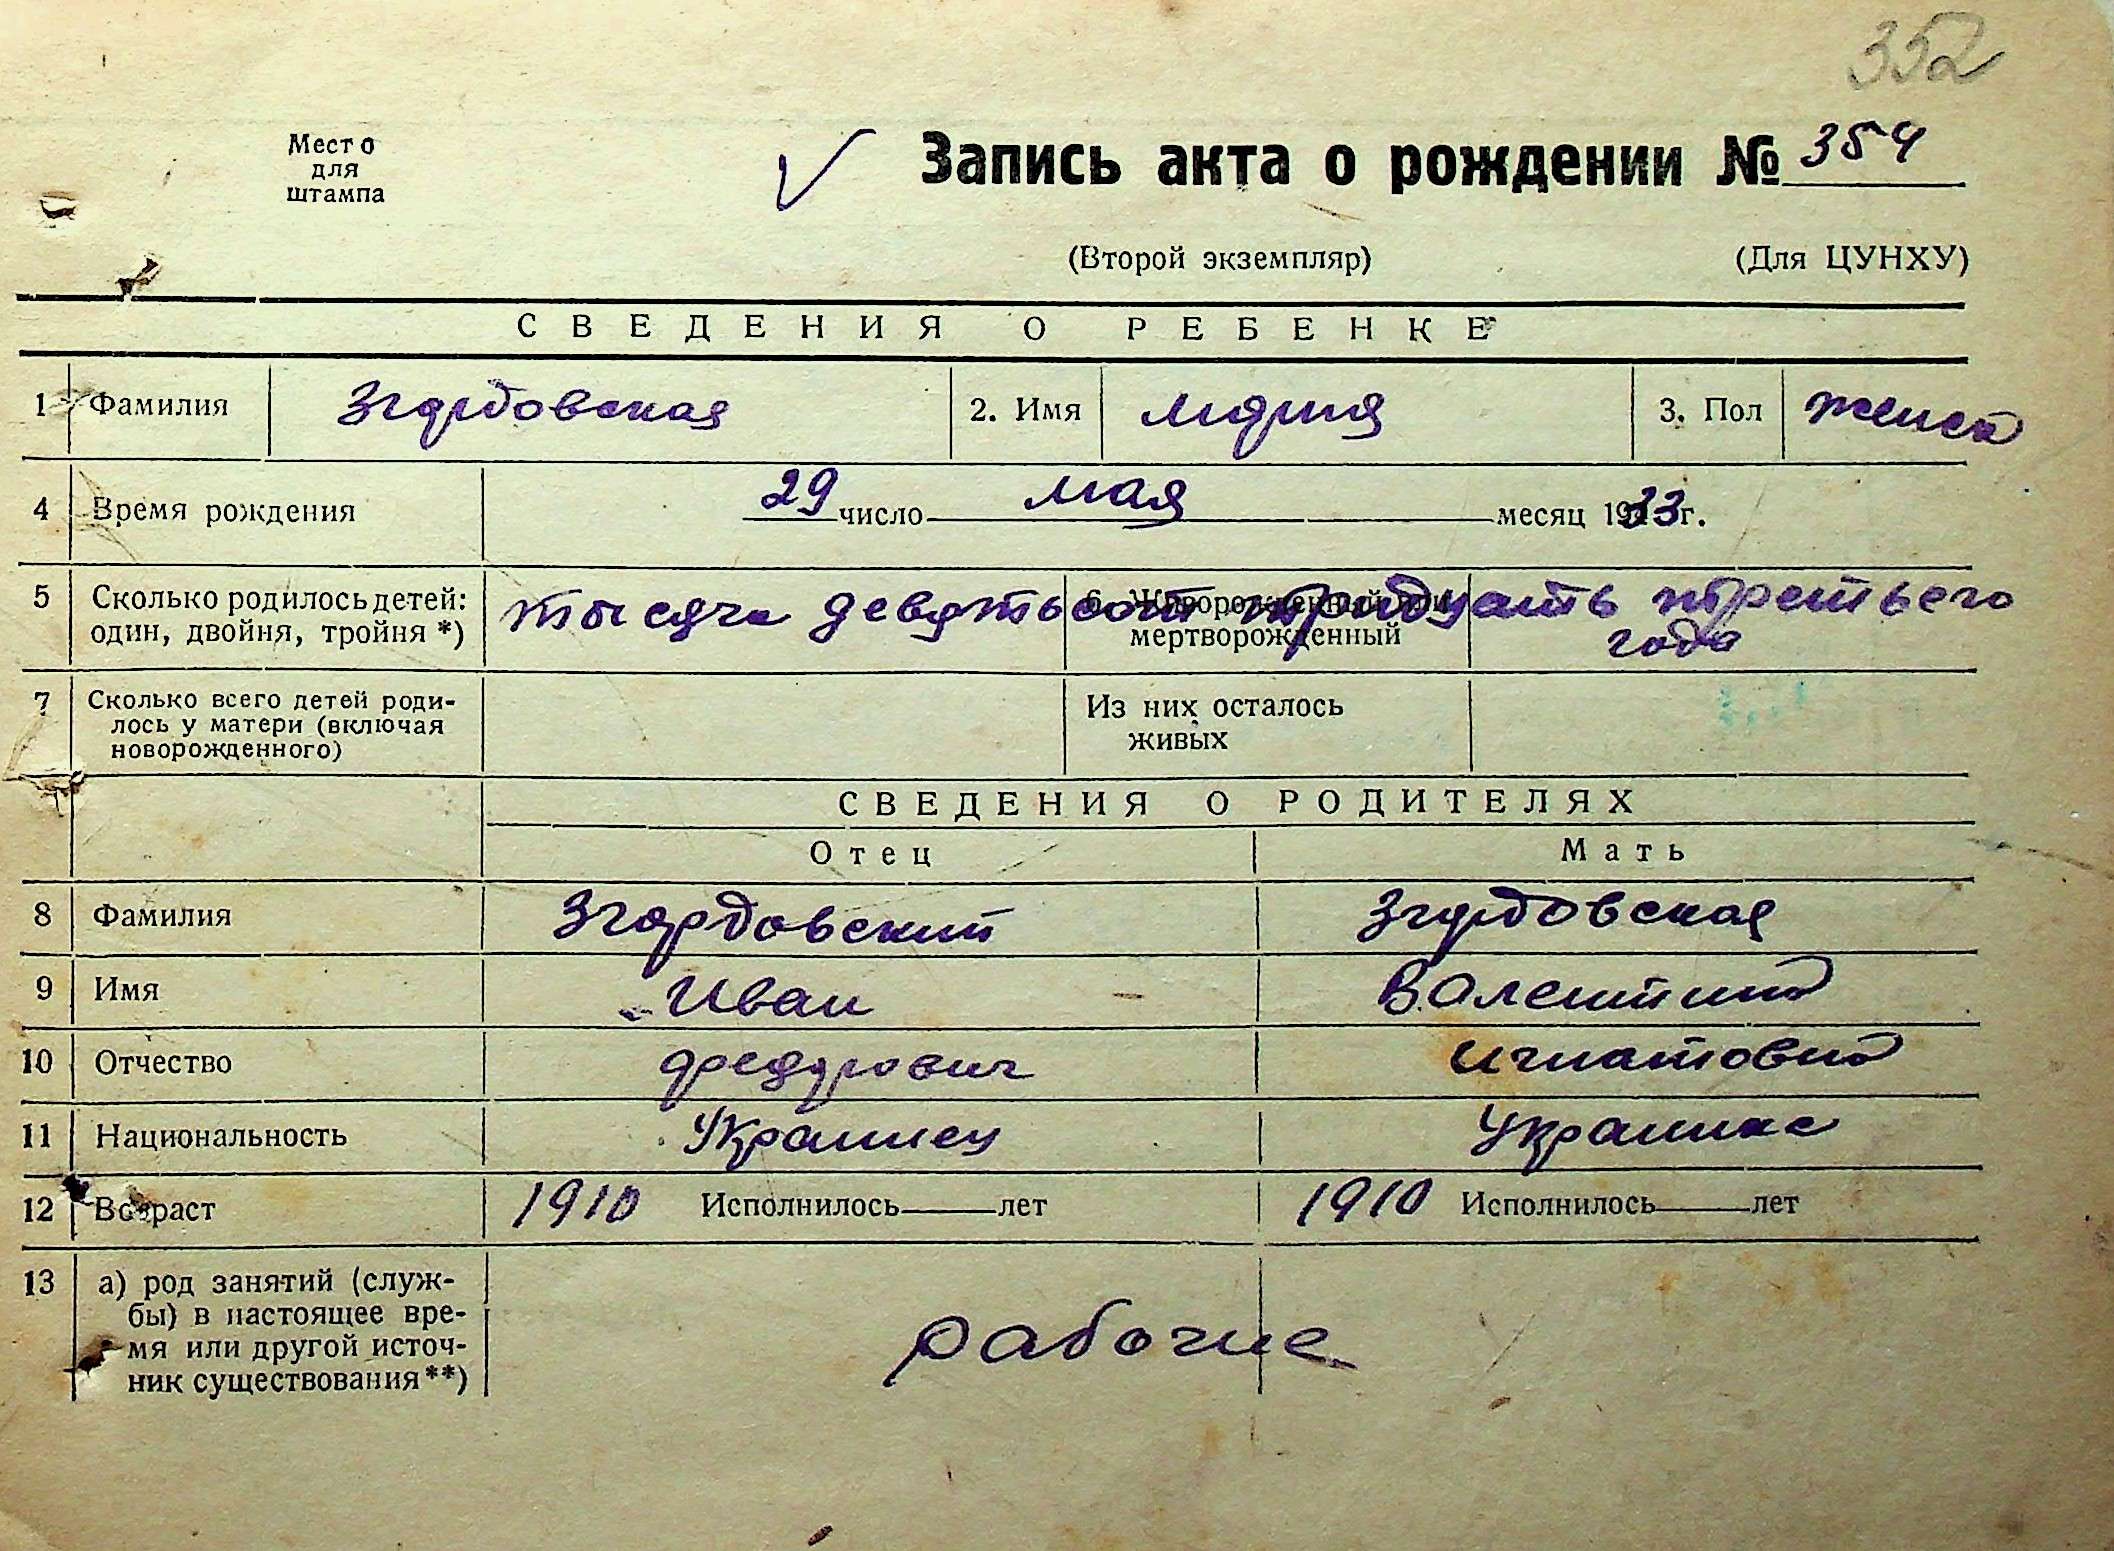 352
Место
для
штампа
Запись акта о рождении № 354
(Второй экземпляр) (Для ЦУНХУ)
СВЕДЕНИЯ О РЕБЕНКЕ
1 Фамилия Згардовская 2. Имя Мария 3. Пол женск
4 Время рождения 29 число мая месяц 1933 г.
5 Сколько родилось детей: тысяча девятьсот тридцать третьего
один, двойня, тройня *) мертворожденный года
7 Сколько всего детей роди- Из них осталось
лось у матери (включая живых
новорожденного)
СВЕДЕНИЯ О РОДИТЕЛЯХ
Отец Мать
8 Фамилия Згардовский Згардовская
9 Имя Иван Валентина
10 Отчество Федорович Игнатовна
11 Национальность Украинец Украинка
12 Возраст 1910 Исполнилось лет 1910 Исполнилось лет
13 а) род занятий (служ-
бы) в настоящее вре-
мя или другой источ- рабочие
ник существования**)